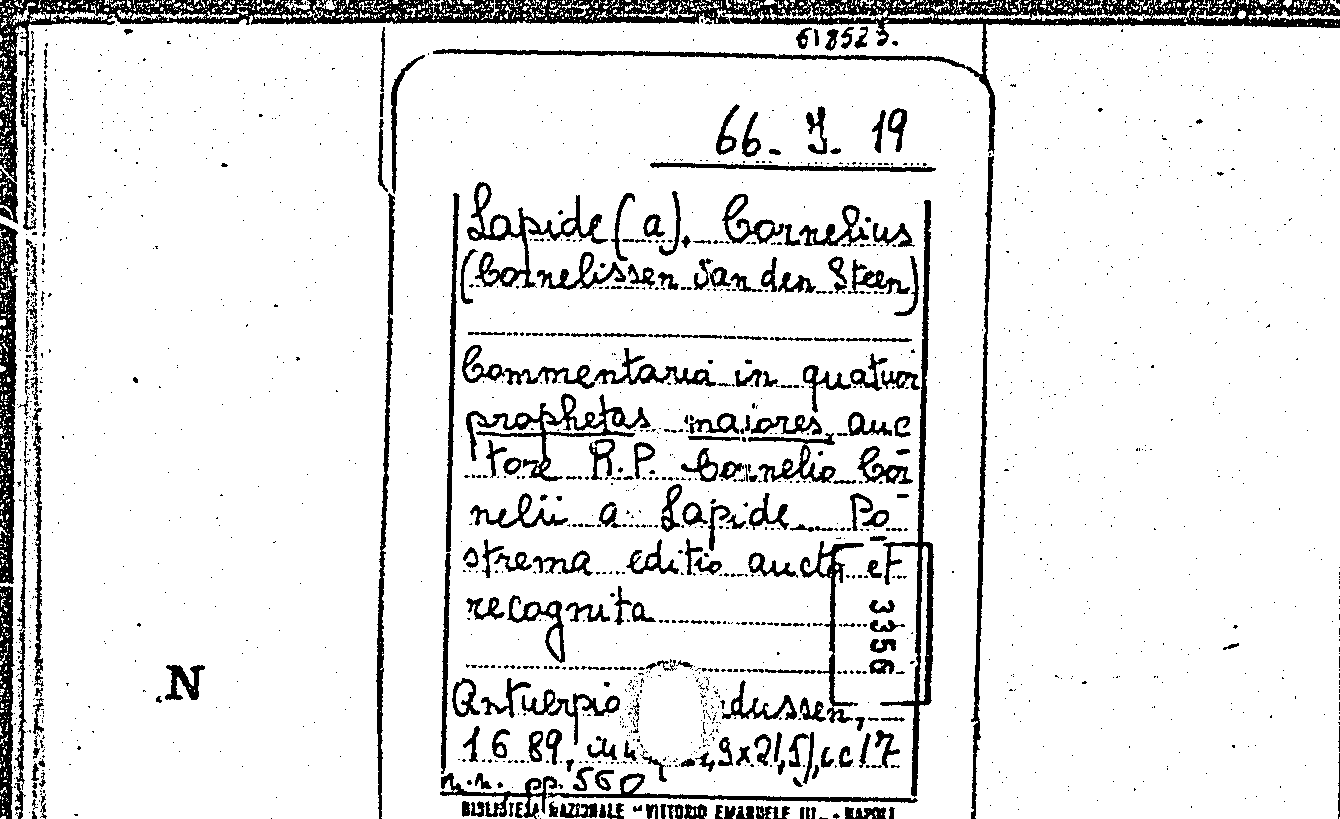 618523.
66. J. 19
Lapide (a). Cornelius
(Cornelissen Van den Steen)
Commentaria in quatuor
prophetas maiores, auc
tore R.P. Cornelio Cor
nelii a Lapide. Po
strema editio aucta et
recognita
3356
N
dussen,
1689,
n.n., pp. 560
BIBLIOTECA NAZIONALE "VITTORIO EMANUELE III" - NAPOLI